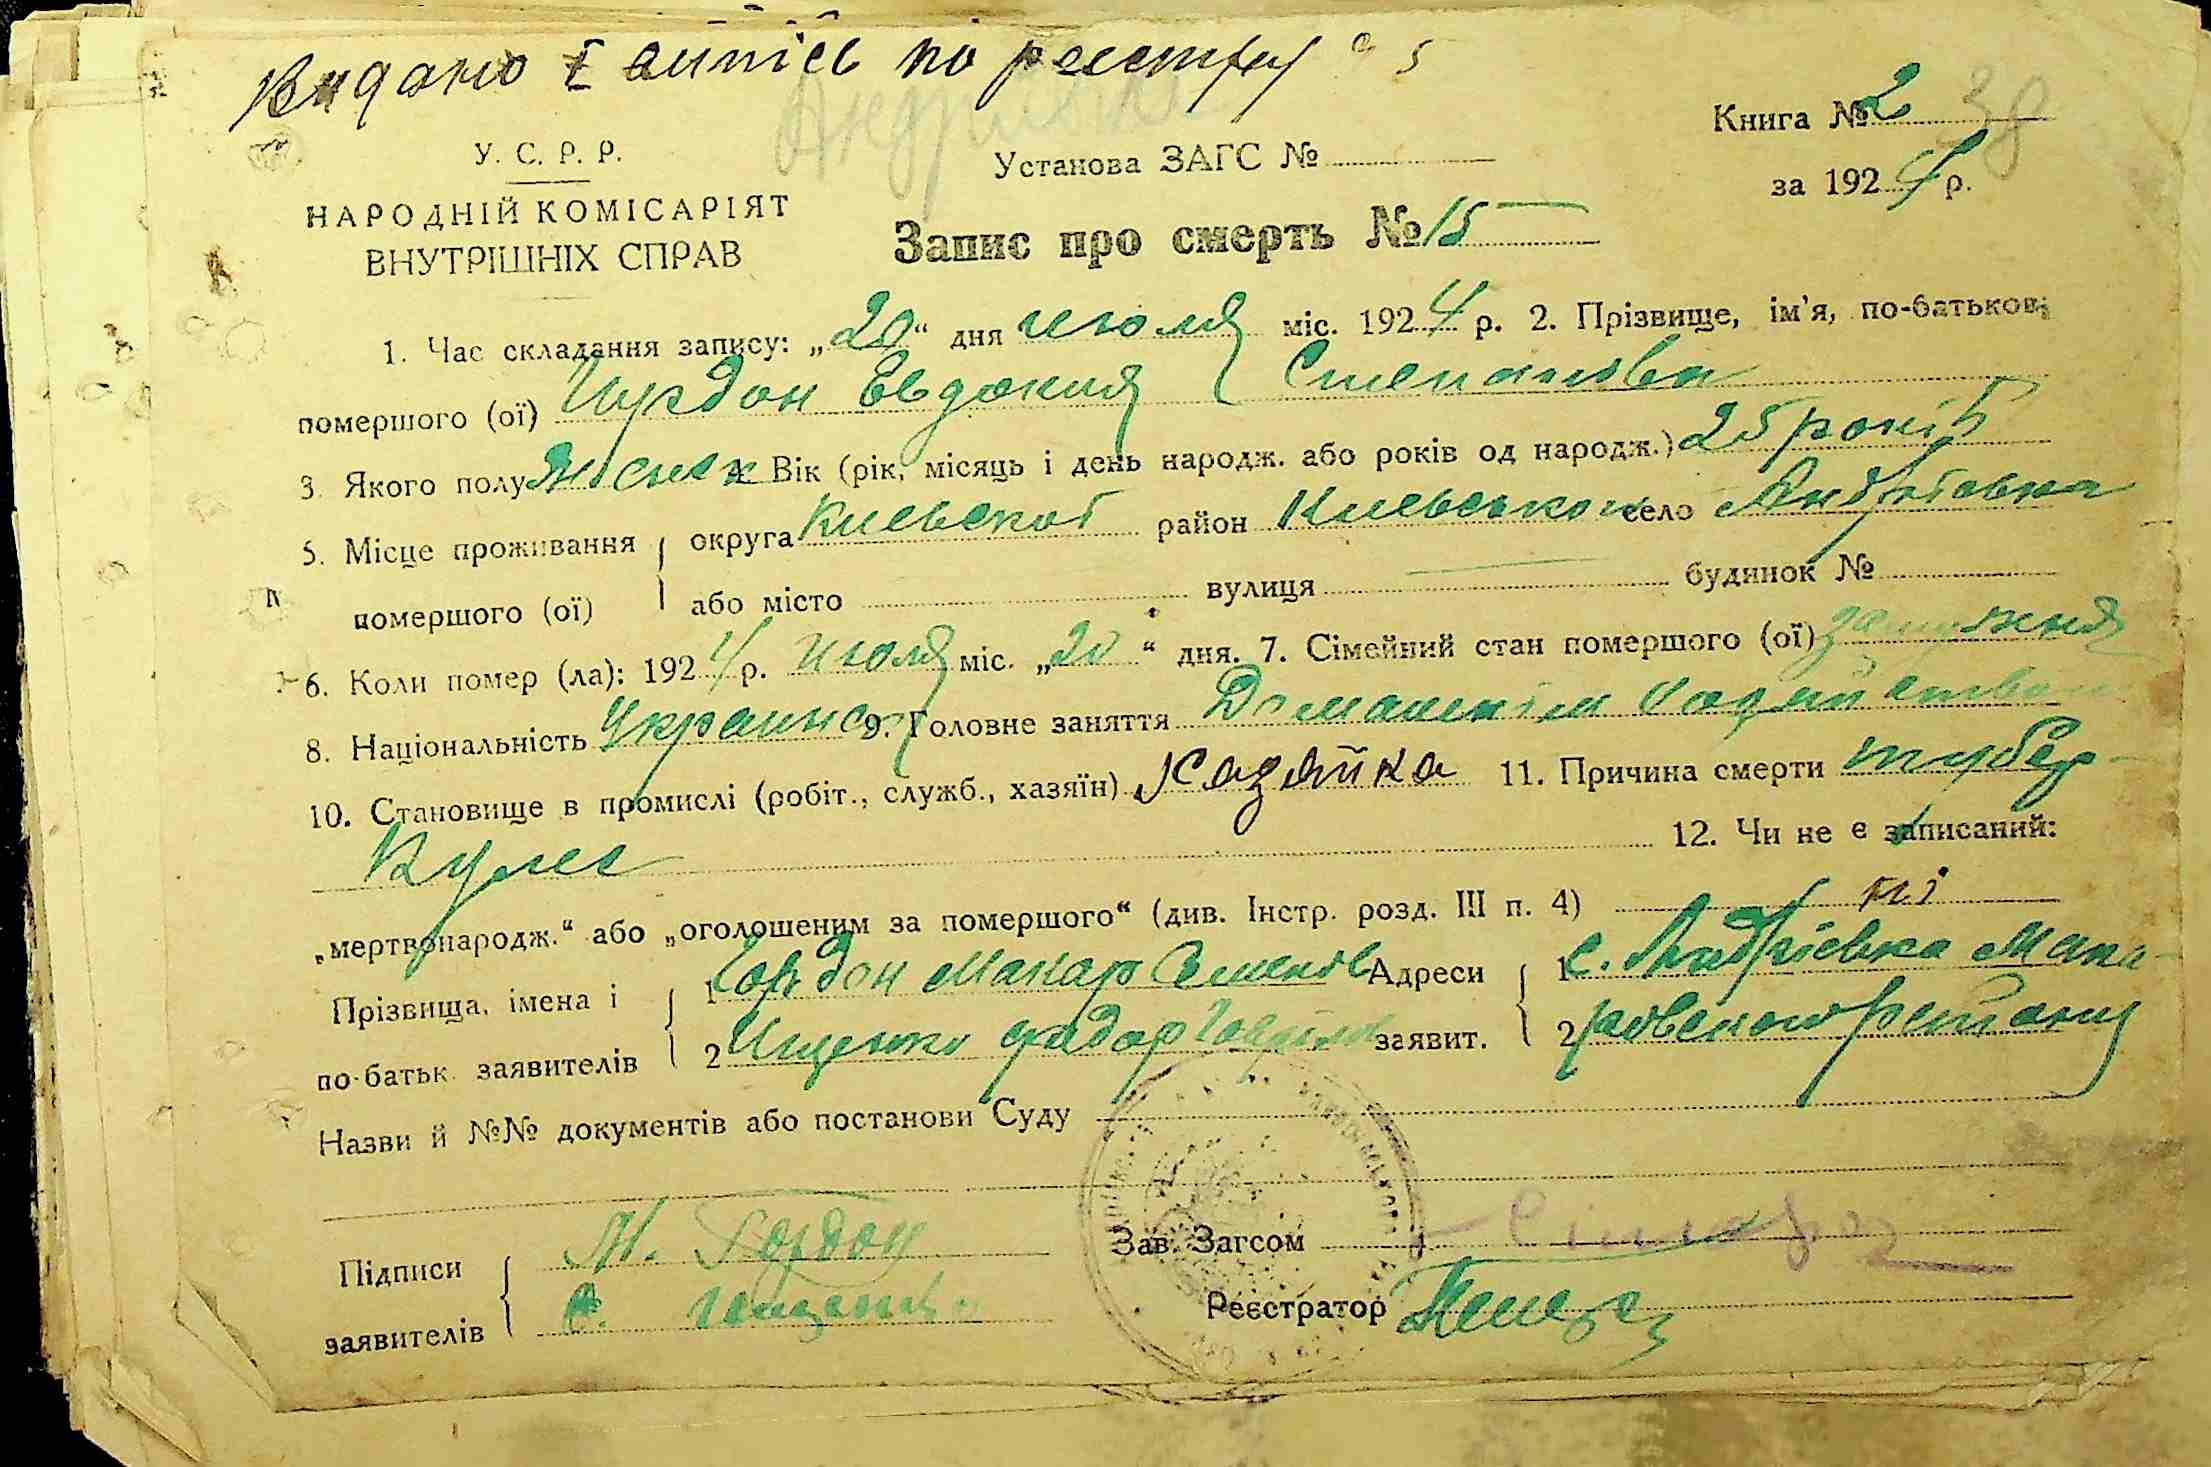 Видано виппісь по реєстру 5
Андріївка
У. С. Р. Р.
НАРОДНІЙ КОМІСАРІЯТ
ВНУТРІШНІХ СПРАВ
Установа ЗАГС №
Книга № 2 38
за 1924 р.
Запис про смерть № 15
1. Час складання запису: „20“ дня июля міс. 1924 р. 2. Прізвище, ім'я, по-батькові
помершого (ої) Гордон Евдокия Степанова
3. Якого полу женск Вік (рік, місяць і день народж. або років од народж.) 25 років
5. Місце проживання округа Киевскоі район Киевського село Андріївка
помершого (ої) або місто вулиця будинок №
6. Коли помер (ла): 1924 р. июля міс. „20“ дня. 7. Сімейний стан помершого (ої) замужня
8. Національність Украинка 9. Головне заняття Домашнім
10. Становище в промислі (робіт., служб., хазяїн) Хазяйка 11. Причина смерти тубер-
кулез 12. Чи не є записаний:
„мертвонародж.“ або „оголошеним за помершого“ (див. Інстр. розд. III п. 4) ні
Прізвища, імена і 1 Гордон Макар Семенов Адреси 1 с. Андрієвка Мака-
по-батьк. заявителів 2 Ищенко Федор заявит. 2 ровского району
Назви й №№ документів або постанови Суду
Підписи М. Гордон Зав. Загсом
заявителів Ф. Ищенко Реєстратор